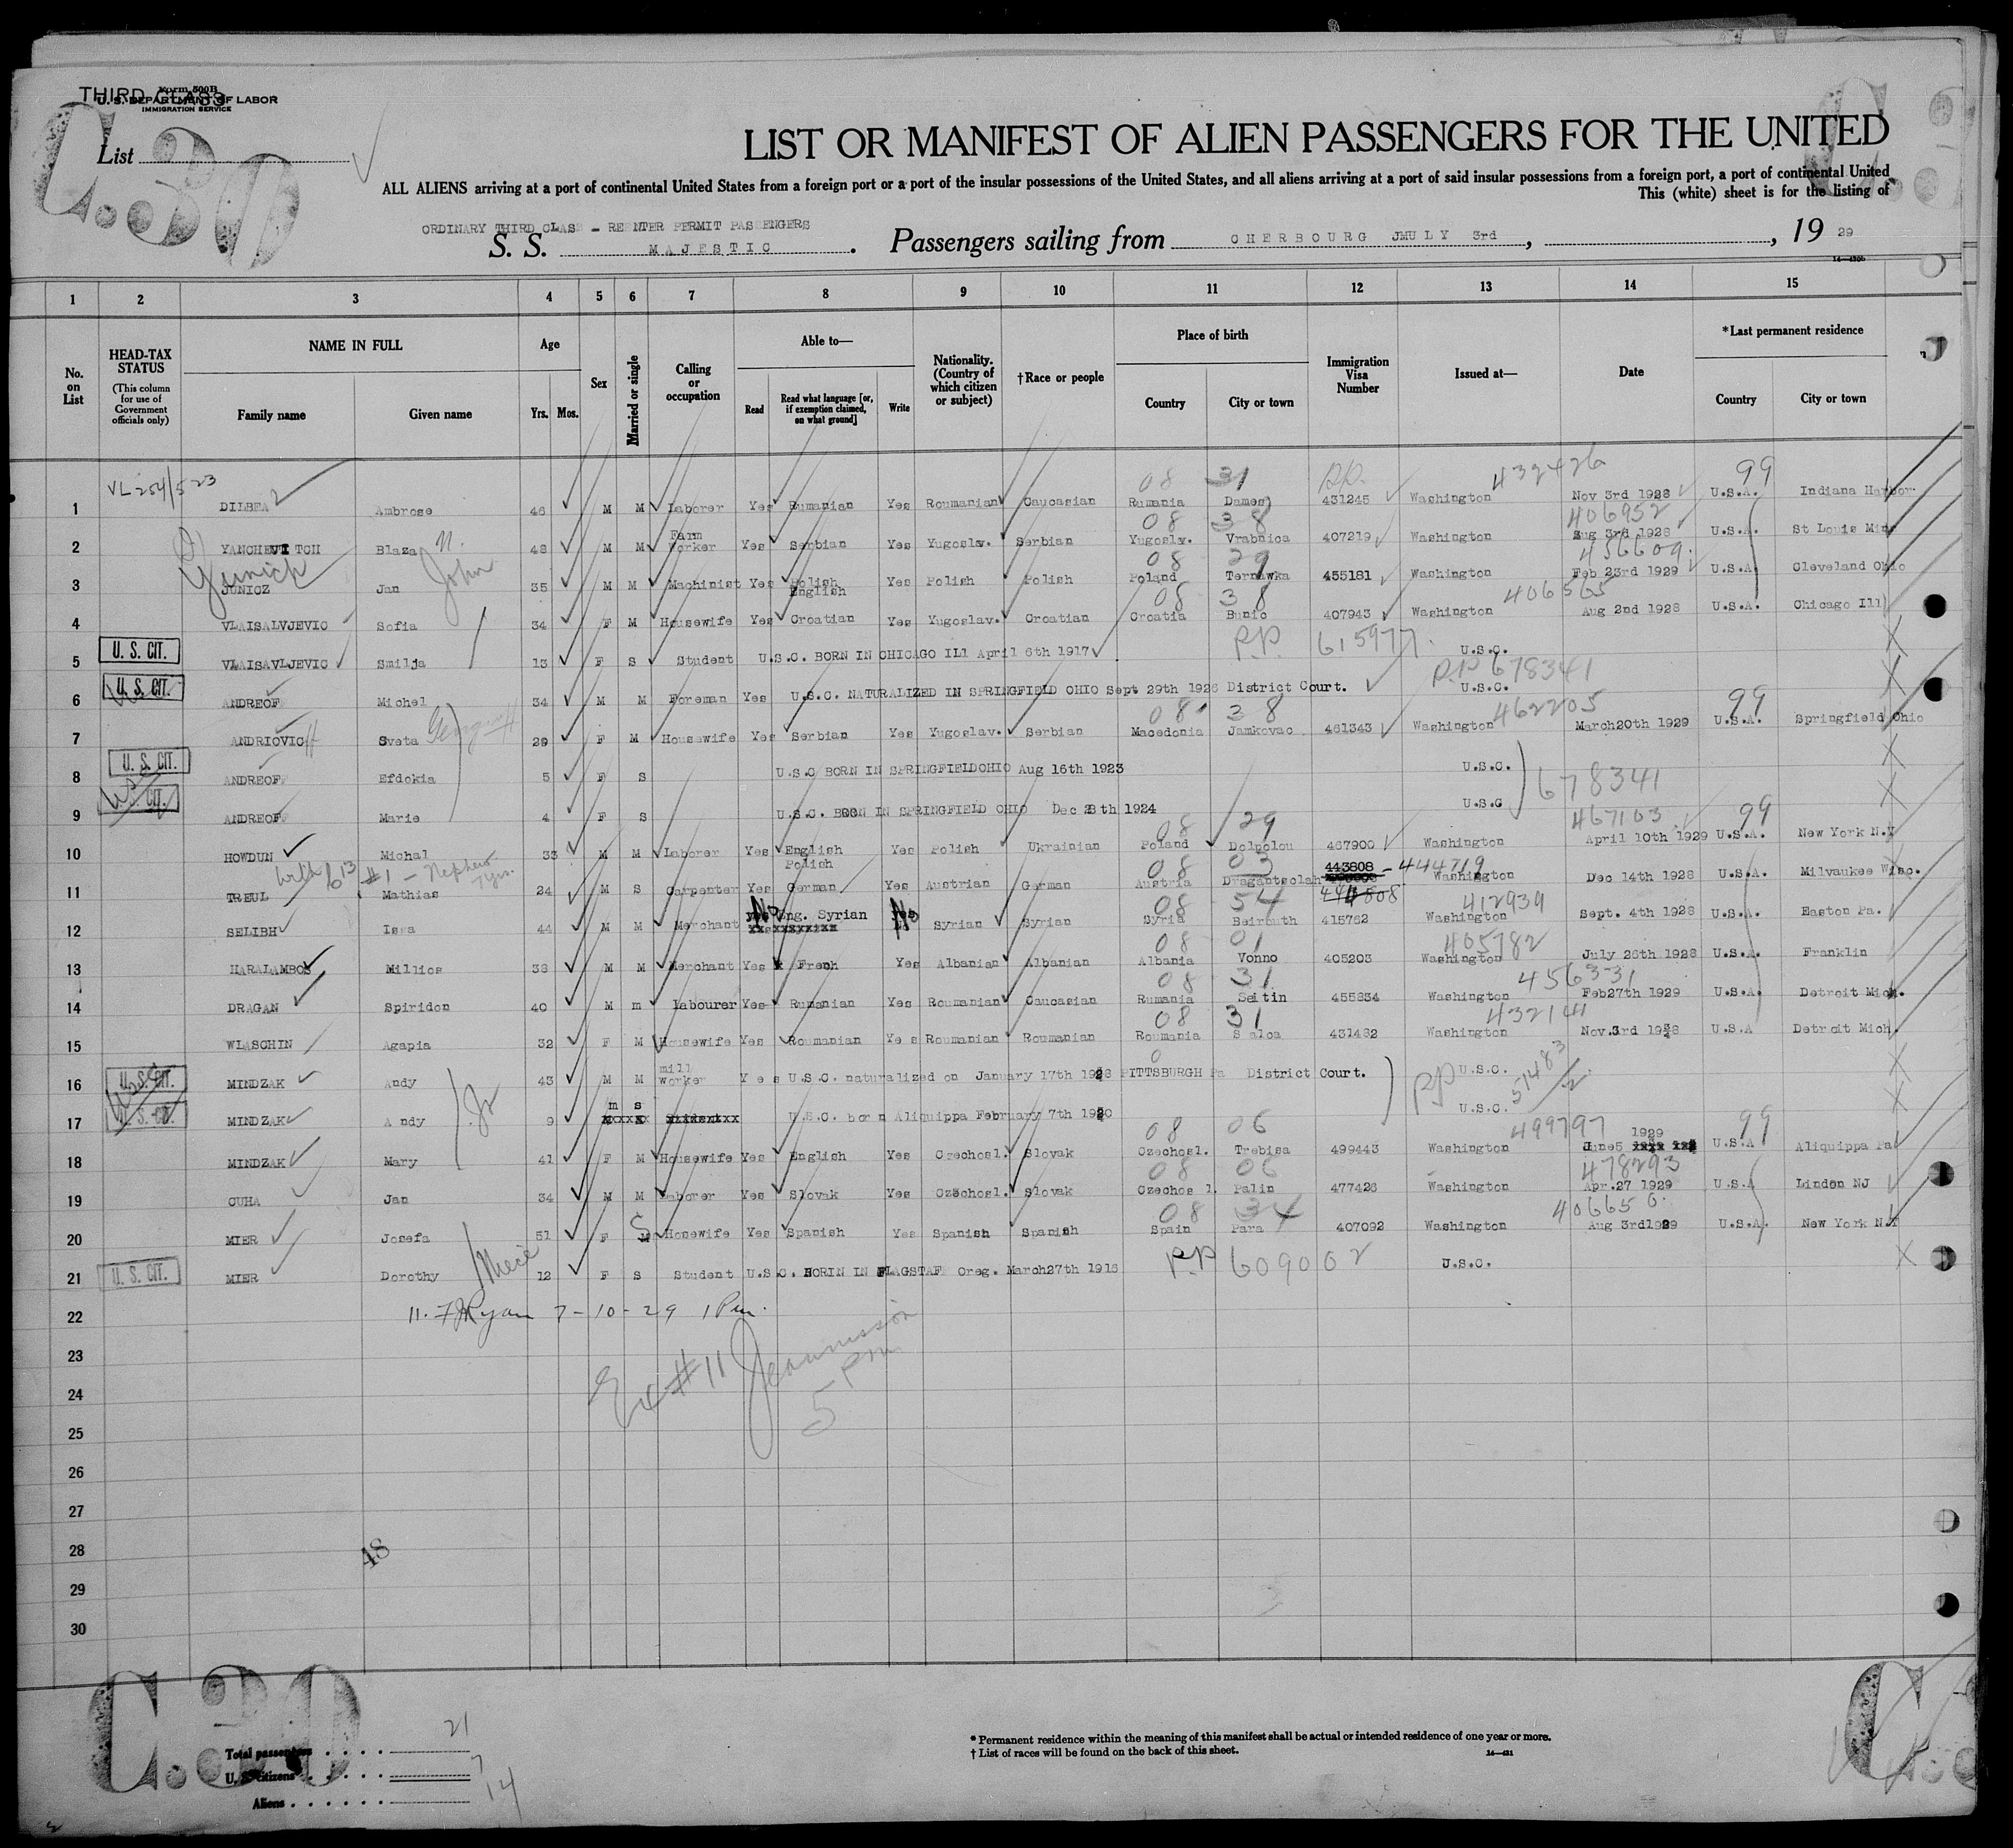 THIRD CLASS
Form 500B
U. S. DEPARTMENT OF LABOR
IMMIGRATION SERVICE
C.30
List
LIST OR MANIFEST OF ALIEN PASSENGERS FOR THE UNITED
ALL ALIENS arriving at a port of continental United States from a foreign port or a port of the insular possessions of the United States, and all aliens arriving at a port of said insular possessions from a foreign port, a port of continental United
This (white) sheet is for the listing of
ORDINARY THIRD CLASS - REENTER PERMIT PASSENGERS
S. S. MAJESTIC. Passengers sailing from CHERBOURG JMULY 3rd, , 19 29
1 2 3 4 5 6 7 8 9 10 11 12 13 14 15
No. on List
HEAD-TAX STATUS (This column for use of Government officials only)
NAME IN FULL Family name Given name
Age Yrs. Mos.
Sex
Married or single
Calling or occupation
Able to— Read Read what language [or, if exemption claimed, on what ground] Write
Nationality. (Country of which citizen or subject)
†Race or people
Place of birth Country City or town
Immigration Visa Number
Issued at—
Date
*Last permanent residence Country City or town
VL 254/523 08 31 P.P. 432426 99
1 DILBEA Ambrose 46 M M Laborer Yes Rumanian Yes Roumanian Caucasian Rumania Dames 431245 Washington Nov 3rd 1928 U.S.A. Indiana Harbor
08 38 406952
2 YANCHEVITCH Blaza N. 48 M M Farm Worker Yes Serbian Yes Yugoslv. Serbian Yugoslv. Vrabnica 407219 Washington Aug 3rd 1928 U.S.A. St Louis Mins
Yunich John 08 29 456609
3 JUNICZ Jan 35 M M Machinist Yes Polish English Yes Polish Polish Poland Ternawka 455181 Washington Feb 23rd 1929 U.S.A. Cleveland Ohio
08 38 406565
4 VLAISALVJEVIC Sofia 34 F M Housewife Yes Croatian Yes Yugoslav. Croatian Croatia Bunic 407943 Washington Aug 2nd 1928 U.S.A. Chicago Ill
5 U. S. CIT. VLAISAVLJEVIC Smilja 13 F S Student U.S.C. BORN IN CHICAGO ILl April 6th 1917 P.P. 615977. U.S.C.
P.P 678341
6 U. S. CIT. ANDREOF Michel 34 M M Foreman Yes U.S.C. NATURALIZED IN SPRINGFIELD OHIO Sept 29th 1926 District Court. U.S.C.
08 38 462205 99
7 ANDRIOVIC Sveta 29 F M Housewife Yes Serbian Yes Yugoslav. Serbian Macedonia Jamkovac 461343 Washington March20th 1929 U.S.A. Springfield Ohio
8 U. S. CIT. ANDREOF Efdokia 5 F S U.S.C BORN IN SPRINGFIELDOHIO Aug 16th 1923 U.S.C.
678341
9 CIT. ANDREOF Marie 4 F S U.S.C. BORN IN SPRINGFIELD OHIO Dec 28th 1924 U.S.C
08 29 467103 99
10 HOWDUN Michal 33 M M Laborer Yes English Polish Yes Polish Ukrainian Poland Dolpolou 467900 Washington April 10th 1929 U.S.A. New York N.Y
with 613 #1 - Nephew 08 03 443808 - 444719
11 TREUL Mathias 24 M S Carpenter Yes German Yes Austrian German Austria Dragantsclah Washington Dec 14th 1928 U.S.A. Milvaukee Wisc.
08 54 444808 412939
12 SELIBH Issa 44 M M Merchant No Eng. Syrian No Syrian Syrian Syria Beirouth 415762 Washington Sept. 4th 1928 U.S.A. Easton Pa.
08 01 405782
13 HARALAMBOS Millios 38 M M Merchant Yes Frenh Yes Albanian Albanian Albania Vonno 405203 Washington July 26th 1928 U.S.A. Franklin
08 31 456331
14 DRAGAN Spiridon 40 M m Labourer Yes Rumanian Yes Roumanian Caucasian Rumania Seitin 455834 Washington Feb27th 1929 U.S.A. Detroit Mich.
08 31 432141
15 WLASCHIN Agapia 32 F M Housewife Yes Roumanian Yes Roumanian Roumanian Roumania S aloa 431482 Washington Nov.3rd 1928 U.S.A Detroit Mich.
16 U.S. CIT. MINDZAK Andy 43 M M mill worker Yes U.S.C. naturalized on January 17th 1928 PITTSBURGH Pa District Court. U.S.C.
PP 51483/2
17 U.S. CIT. MINDZAK Andy Jr 9 m s U.S.C. born Aliquippa February 7th 1920 U.S.C.
08 06 499797 99
18 MINDZAK Mary 41 F M Housewife Yes English Yes Czechosl. Slovak Czechosl. Trebisa 499443 Washington June5 1929 U.S.A Aliquippa Pa
08 06 478293
19 CUHA Jan 34 M M Laborer Yes Slovak Yes Czechosl. Slovak Czechos l. Palin 477426 Washington Apr.27 1929 U.S.A Linden NJ
08 34 406656.
20 MIER Josefa 51 F S Housewife Yes Spanish Yes Spanish Spanish Spain Para 407092 Washington Aug 3rd1929 U.S.A. New York N.Y
Niece
21 U. S. CIT. MIER Dorothy 12 F S Student U.S.C. BORIN IN FLAGSTAF Oreg. March27th 1916 P.P 609002 U.S.C.
22 11. FJRyan 7-10-29 1 Pm.
23
24 Ex #11 Jeannission 5 Pm
25
26
27
28 48
29
30
C.30
Total passengers . . . . 21
U. S. citizens . . . . . 7
Aliens . . . . . . 14
* Permanent residence within the meaning of this manifest shall be actual or intended residence of one year or more.
† List of races will be found on the back of this sheet. 14—431